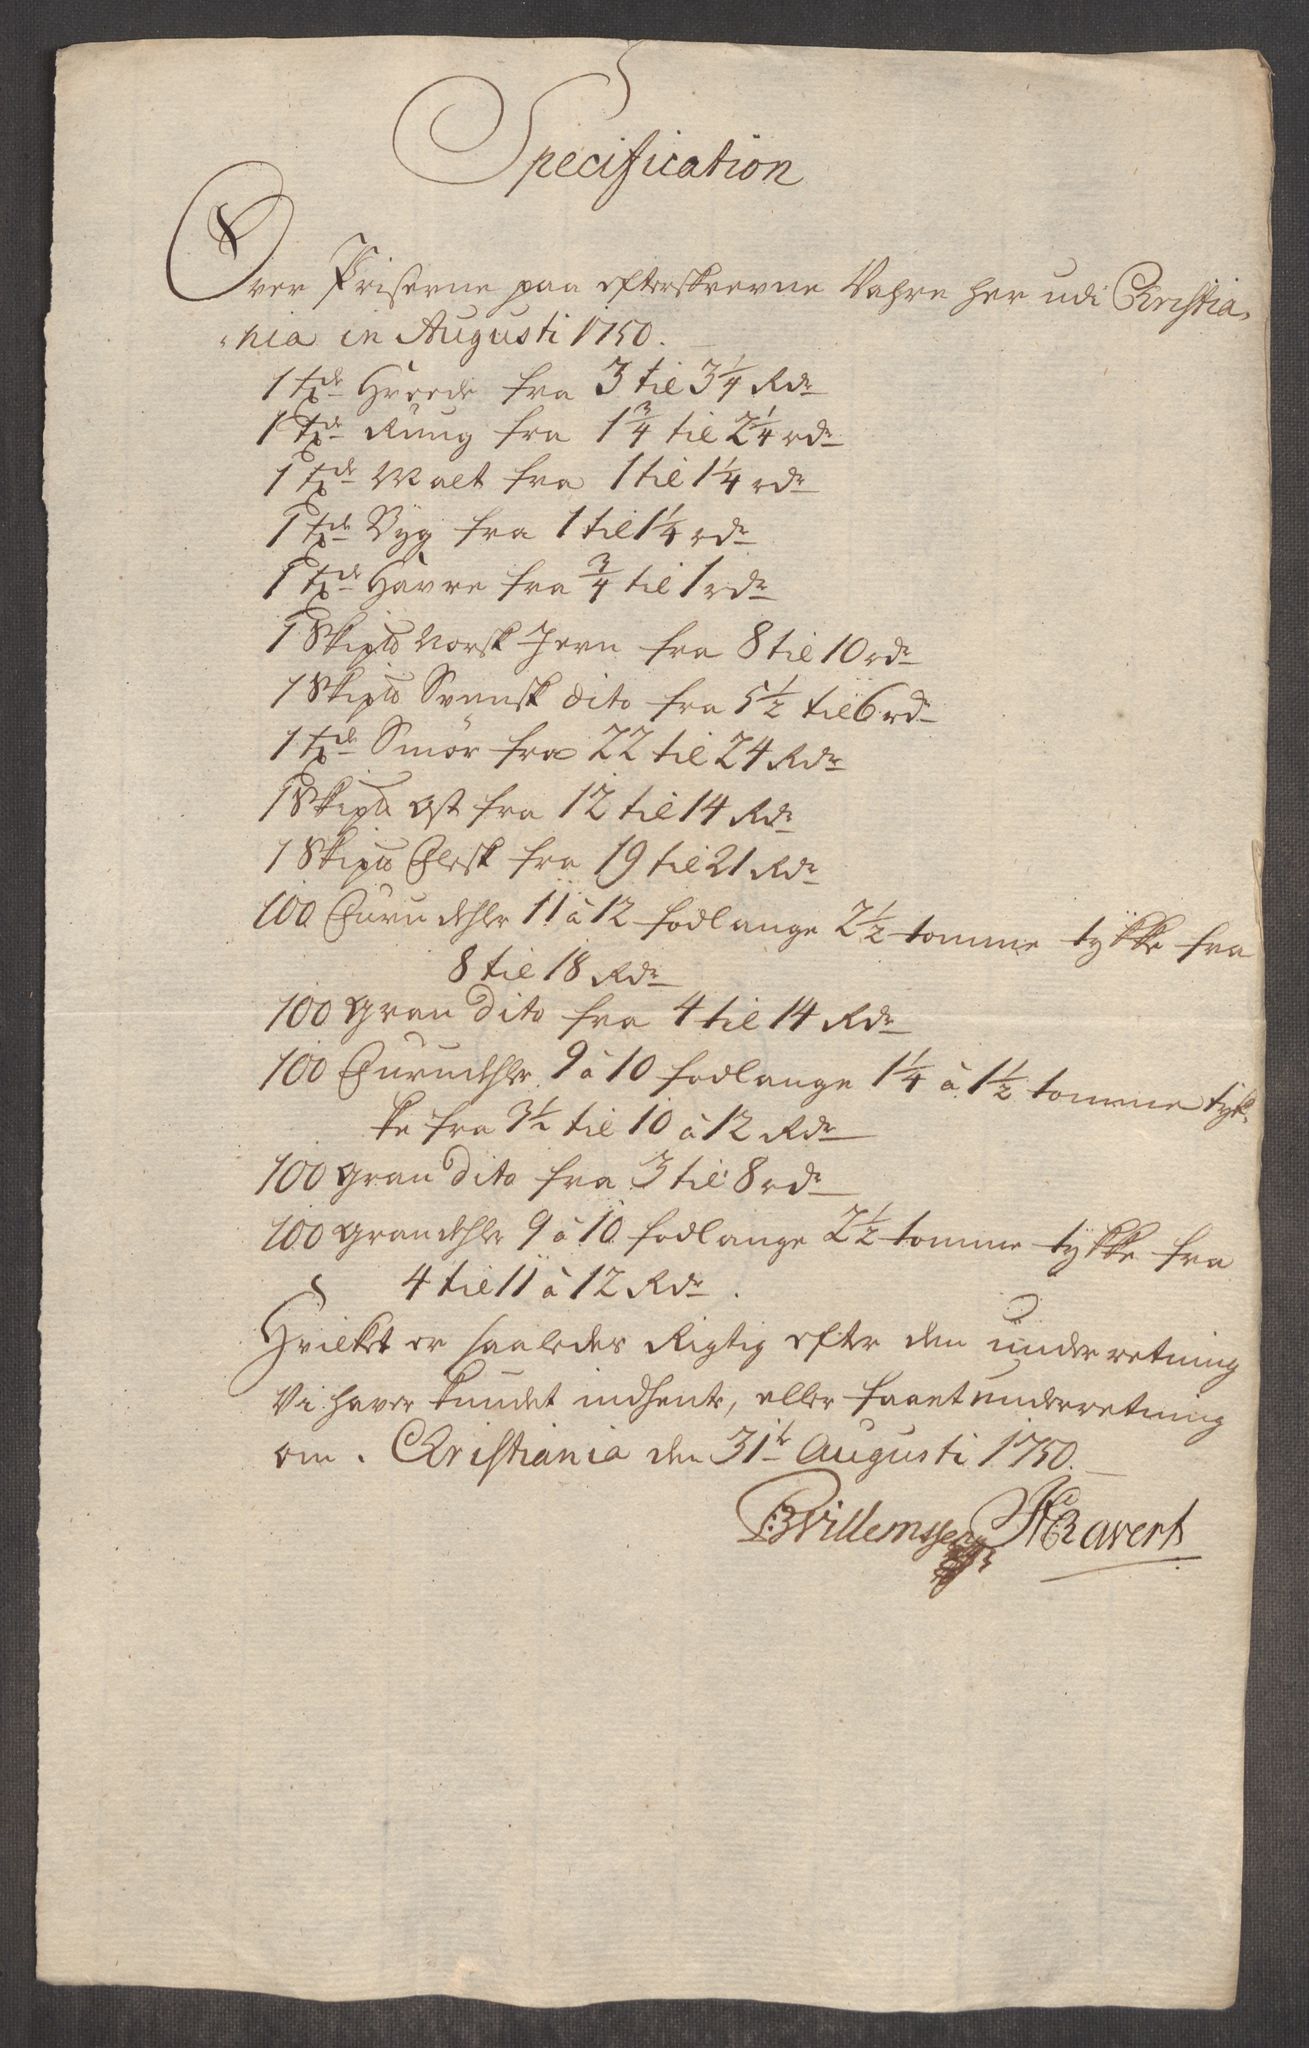 Specification
Over Priserne paa efterskrevne Vahre her udi Christia-
nia in Augusti 1750.
1 tde Hveede fra 3 til 3 1/4 Rdr
1 tde Rüug fra 1 3/4 til 2 1/4 rdr
1 tde Malt fra 1 til 1 1/4 rdr
1 tde Byg fra 1 til 1 1/4 rdr
1 tde Havre fra 3/4 til 1 rdr
1 Skipd Norsk Jern fra 8 til 10 rdr
1 Skipd Svensk dito fra 5 1/2 til 6 rdr
1 tde Smør fra 22 til 24 Rdr
1 Skipd Ost fra 12 til 14 Rdr
1 Skipd Flesk fra 19 til 21 Rdr
100 Furu dehler 11 à 12 fodlange 2 1/2 tomme tykke fra
8 til 18 Rdr
100 Gran dito fra 4 til 14 Rdr
100 Furudehler 9 à 10 fodlange 1 1/4 à 1 1/2 tomme tyk-
ke fra 3 1/2 til 10 à 12 Rdr
100 Gran dito fra 3 til 8 rdr
100 Grandehler 9 à 10 fodlange 2 1/2 tomme tykke fra
4 til 11 à 12 Rdr.
Hvilket er saaledes Rigtig efter den underretning
Vi haver kundet indhente, eller faaet underretning
om. Christiania den 31te Augusti 1750.
Willemssen Ravert